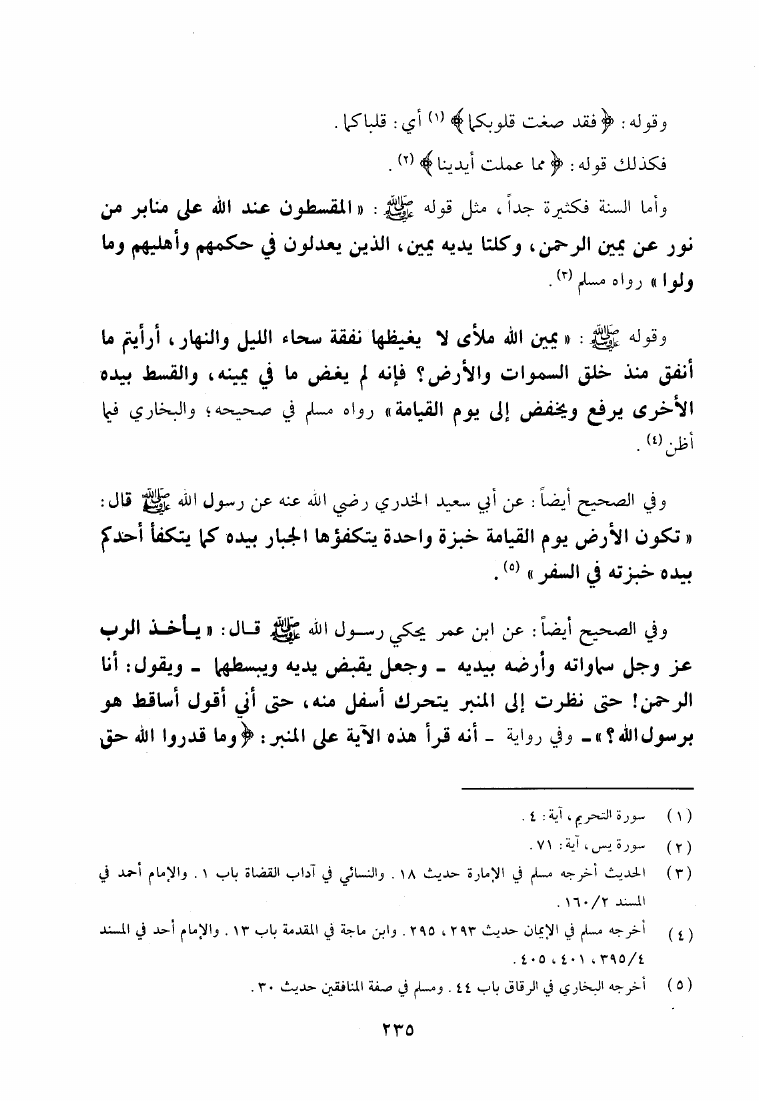 وقوله : ﴿ فقد صغت قلوبكما ﴾ (١) أي : قلباكما .
فكذلك قوله : ﴿ مما عملت أيدينا ﴾ (٢) .
وأما السنة فكثيرة جداً ، مثل قوله ﷺ : « المقسطون عند الله على منابر من
نور عن يمين الرحمن ، وكلتا يديه يمين ، الذين يعدلون في حكمهم وأهليهم وما
ولوا » رواه مسلم (٣) .
وقوله ﷺ : « يمين الله ملأى لا يغيظها نفقة سحاء الليل والنهار ، أرأيتم ما
أنفق منذ خلق السموات والأرض ؟ فإنه لم يغض ما في يمينه ، والقسط بيده
الأخرى يرفع ويخفض إلى يوم القيامة » رواه مسلم في صحيحه ؛ والبخاري فيما
أظن (٤) .
وفي الصحيح أيضاً : عن أبي سعيد الخدري رضي الله عنه عن رسول الله ﷺ قال :
« تكون الأرض يوم القيامة خبزة واحدة يتكفؤها الجبار بيده كما يتكفأ أحدكم
بيده خبزته في السفر » (٥) .
وفي الصحيح أيضاً : عن ابن عمر يحكي رسول الله ﷺ قال : « يأخذ الرب
عز وجل سماواته وأرضه بيديه - وجعل يقبض يديه ويبسطها - ويقول : أنا
الرحمن ! حتى نظرت إلى المنبر يتحرك أسفل منه ، حتى أني أقول أساقط هو
برسول الله ؟ » - وفي رواية - أنه قرأ هذه الآية على المنبر : ﴿ وما قدروا الله حق
(١) سورة التحريم ، آية : ٤ .
(٢) سورة يس ، آية : ٧١ .
(٣) الحديث أخرجه مسلم في الإمارة حديث ١٨ . والنسائي في آداب القضاة باب ١ . والإمام أحمد في
المسند ١٦٠/٢ .
(٤) أخرجه مسلم في الإيمان حديث ٢٩٣ ، ٢٩٥ . وابن ماجة في المقدمة باب ١٣ . والإمام أحد في المسند
٣٩٥/٤ ، ٤٠١ ، ٤٠٥ .
(٥) أخرجه البخاري في الرقاق باب ٤٤ . ومسلم في صفة المنافقين حديث ٣٠ .
٢٣٥